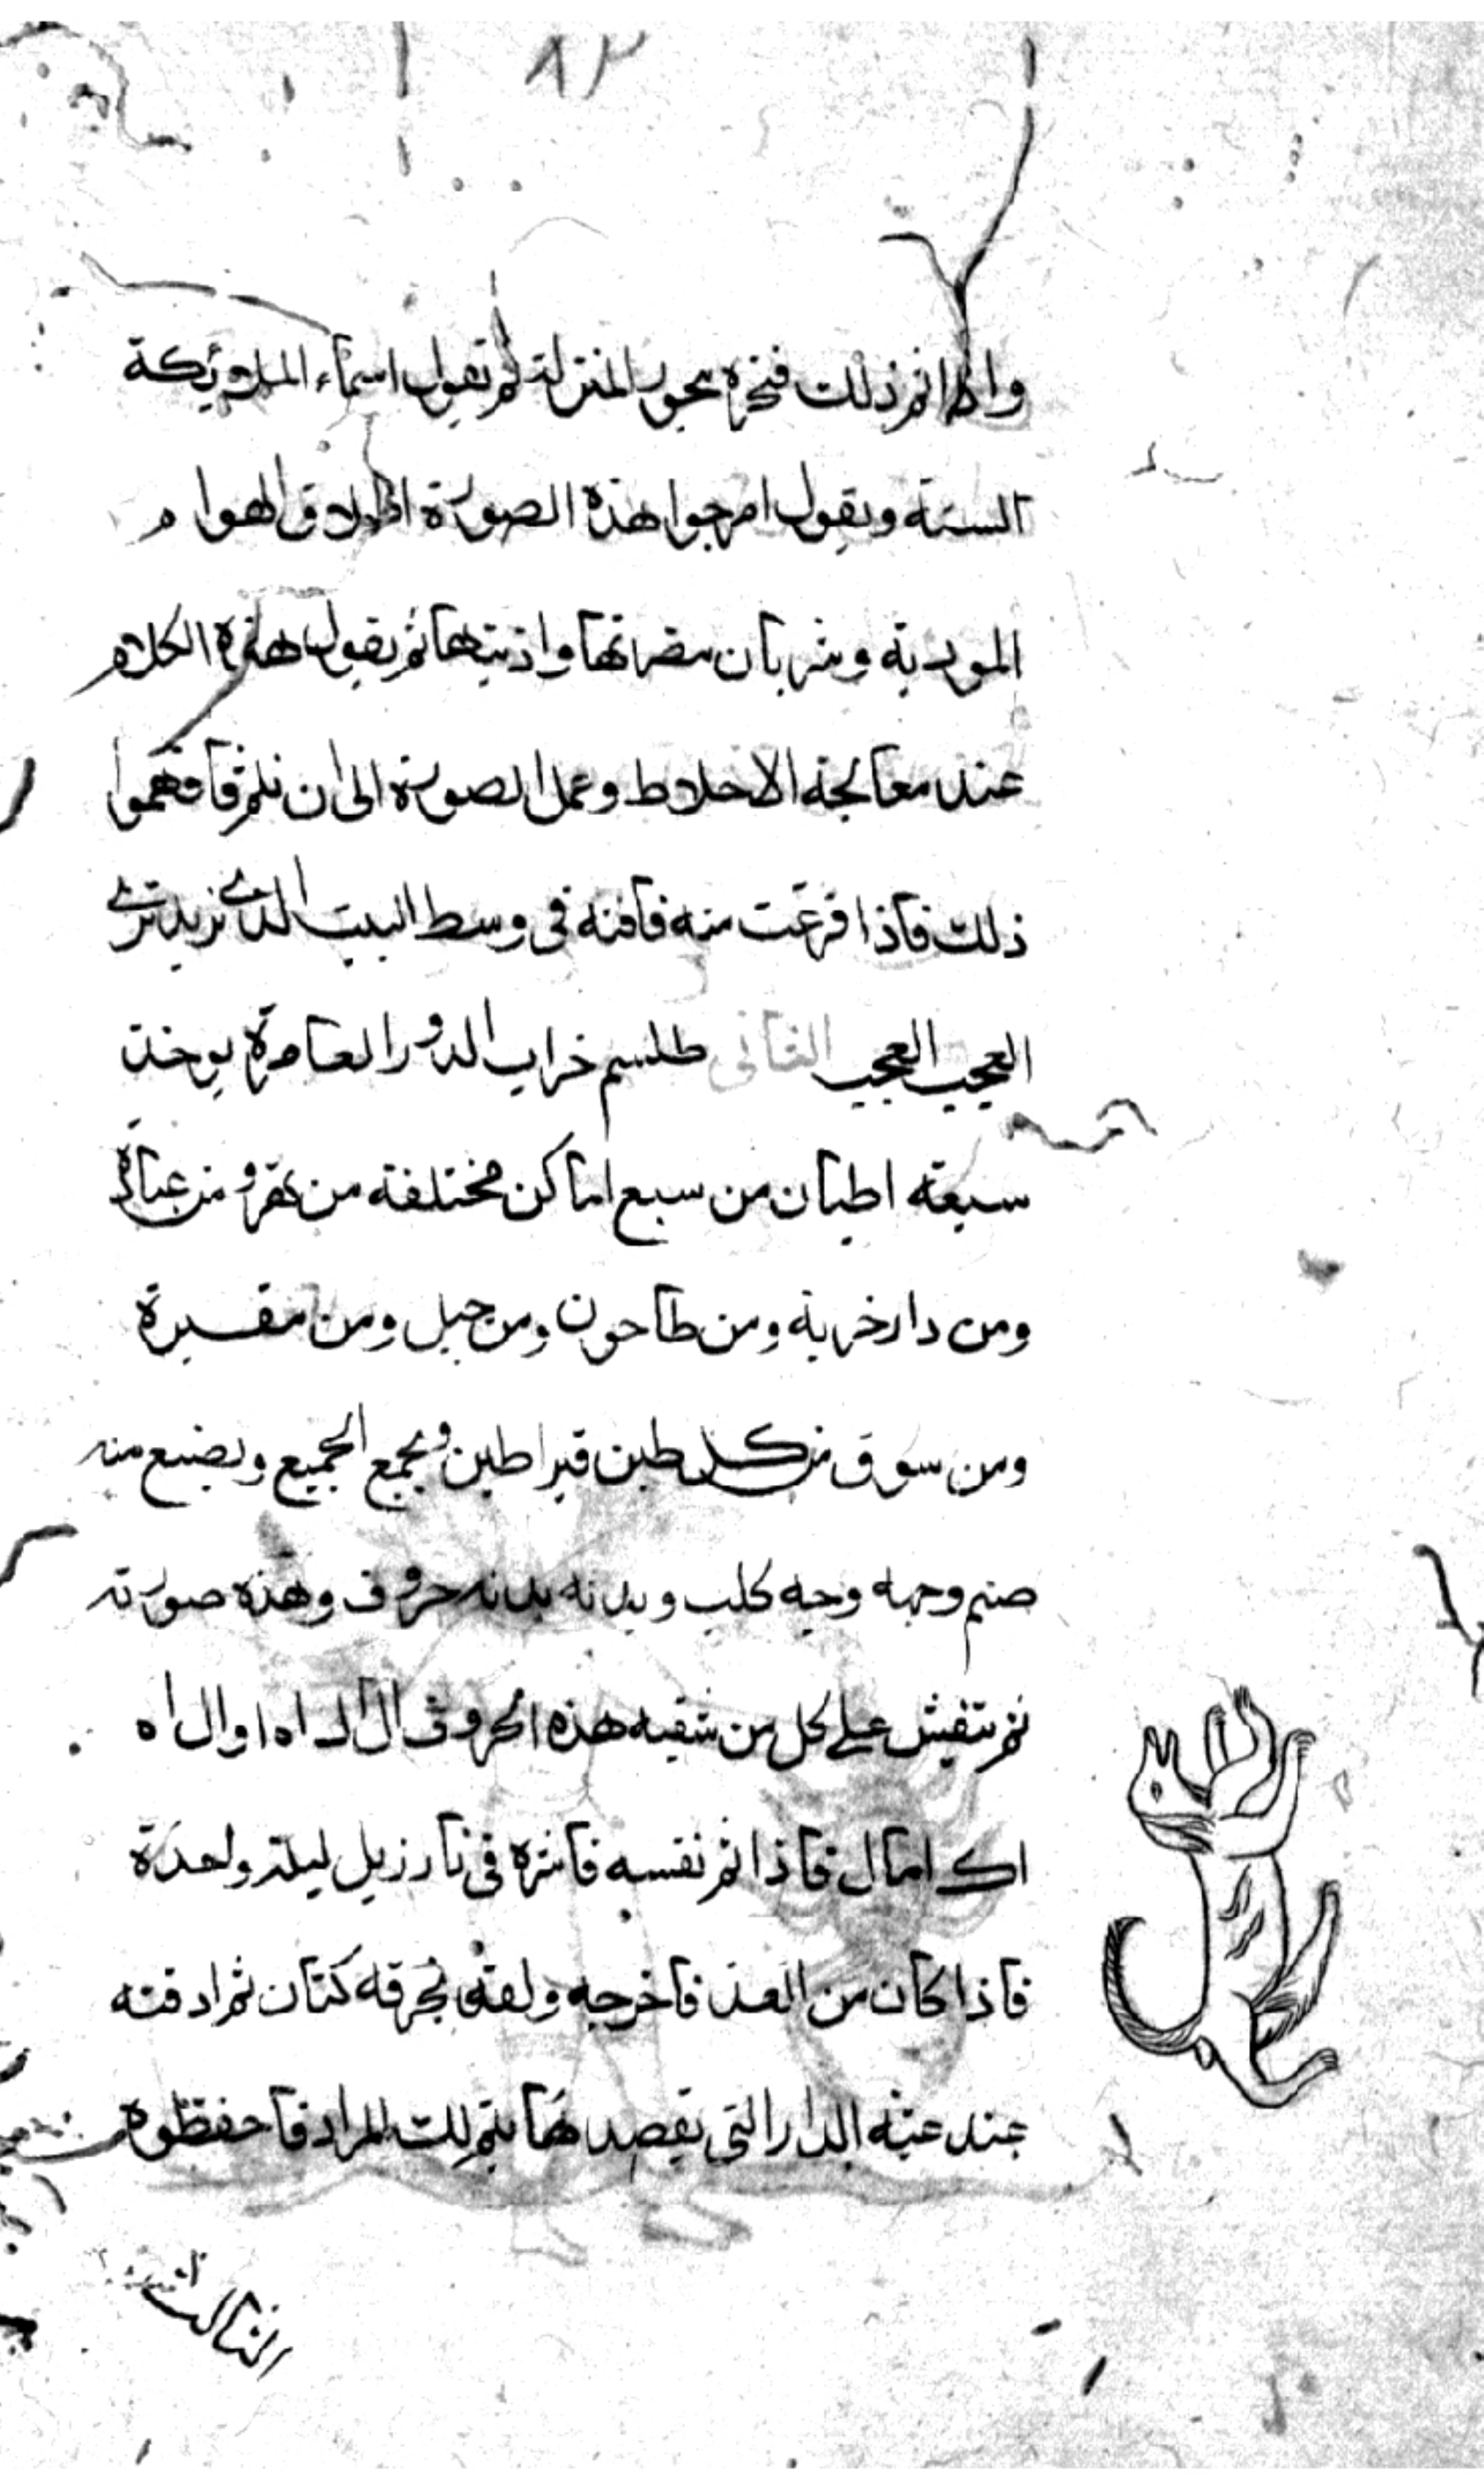 ٨٢
واذا تم ذلك فبخره ببخور المنزلة ثم تقول اسماء الملائكة
الستة وتقول امزجوا هذه الصورة الهوام
الموذية ومضراتها واذيتها ثم يقول هذه الكلام
عند معالجة الاخلاط وعمل الصورة الى ان تتم فافهموا
ذلك فاذا فرغت منه فادفنه فى وسط البيت الذى تريد ترى
العجب العجيب الثانى طلسم خراب الدور العامرة يوخذ
سبعة اطيان من سبع اماكن مختلفة من
ومن دار خربة ومن طاحون ومن جبل ومن مقبرة
ومن سوق من كل طين قيراطين ويجمع الجميع ويصنع منه
صنم وجهه وجه كلب وبدنه بدنه خروف وهذه صورته
ثم تنقش على كل من شقيه هذه الحروف ال ال اه اه اوال اه
اك امال فاذا تم نقشه فى نار زبل ليلة واحدة
فاذا كان من الغد فاخرجه ولفه بخرقه كتان ثم ادفنه
عند عتبة الدار التى يقصدها يتم لك المراد فاحفظوه
الثالث